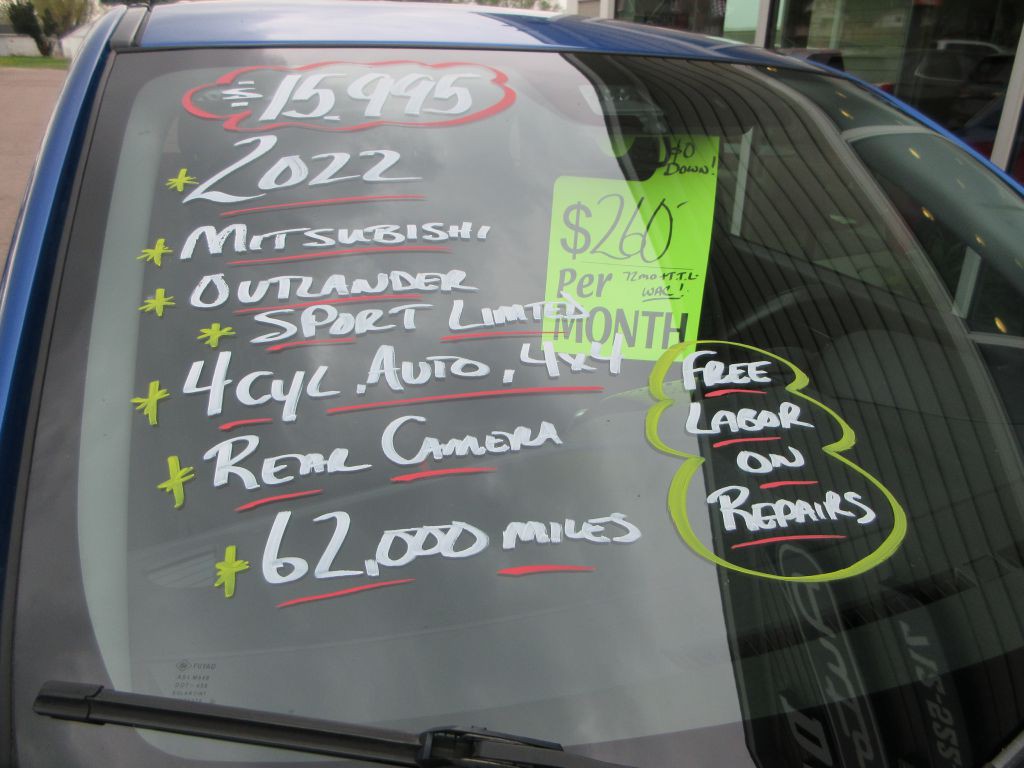 $15,995
2022
MITSUBISHI
OUTLANDER
SPORT LIMITED
4CYL, AUTO, 4x4
REAR CAMERA
62,000 MILES
$0
DOWN!
$260
Per 72mo+T.T.L.
WAC!
MONTH
FREE
LABOR
ON
REPAIRS
FUYAO